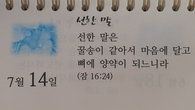 선한 말
선한 말은
꿀송이 같아서 마음에 달고
뼈에 양약이 되느니라
(잠 16:24)
7월 14일